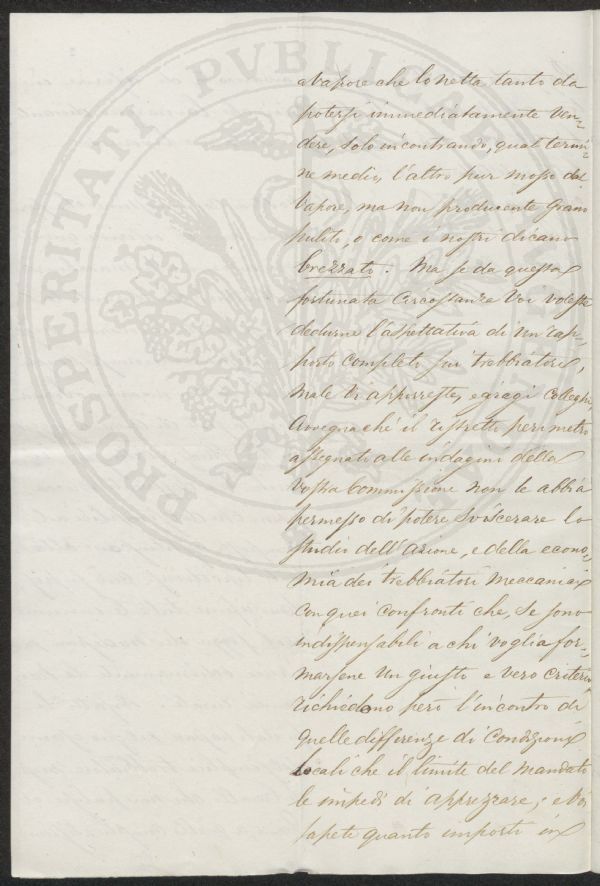 PROSPERITATI PVBLICAE AVG
a vapore che lo netta tanto da
potersi immediatamente ven-
dere, solo incontrando, qual termi-
ne medio, l'altro pur mosso dal
vapore, ma non producente grano
pulito, o come i nostri dicano
brezzato. Ma se da questa
fortunata circostanza Voi voleste
dedurne l'aspettativa di un rap-
porto completo sui trebbiatori,
male vi apporreste, egregi Colleghi,
avvegnaché il ristretto perimetro
assegnato alle indagini della
Vostra Commissione non le abbia
permesso di potere sviscerare lo
studio dell'azione, e della econo-
mia dei trebbiatori meccanici
con quei confronti che, se sono
indispensabili a chi voglia for-
marsene un giusto e vero criterio
richiedono però l'incontro di
quelle differenze di condizioni
locali che il limite del mandato
le impedì di apprezzare; e Voi
sapete quanto importi in